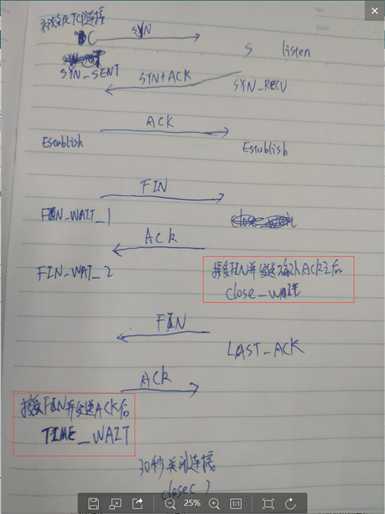 TCP连接
C
SYN
S listen
SYN_SENT
SYN+ACK
SYN_RECV
ACK
Establish
Establish
FIN
FIN_WAIT_1
ACK
FIN_WAT_2
接受FIN并发送确认ACK之后
close_wait
FIN
LAST_ACK
ACK
接受FIN并发送ACK后
TIME_WAIT
30秒关闭连接
close( )
25%
1:1